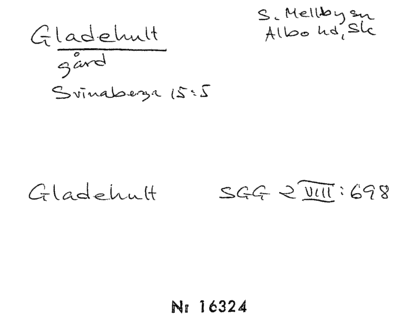 Gladehult
S. Mellby sn
Albo hd, Sk
gård
Svinaberga 15:5
Gladehult SGG 2 VIII: 698
Nr 16324